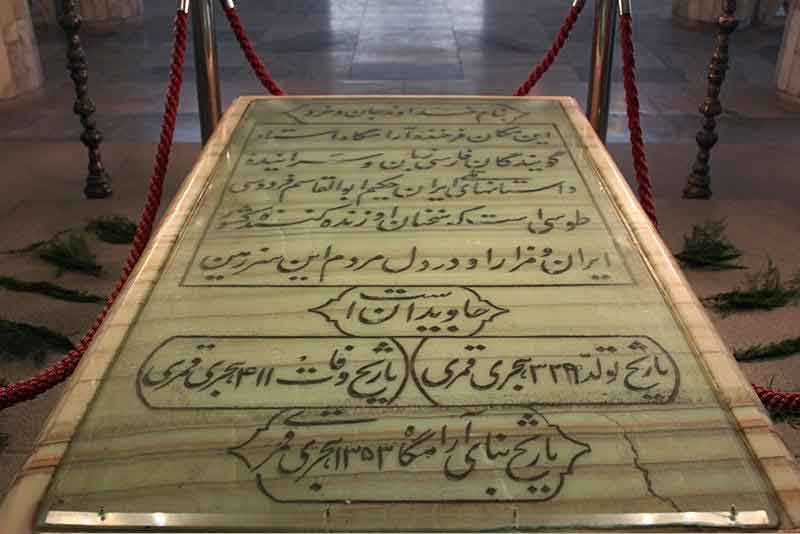 بنام خداوند جان و خرد
این مکان فرخنده آرامگاه استاد
گویندگان فارسی زبان و سراینده
داستانهای ایران حکیم ابوالقاسم فردوسی
طوسی است که سخنان او زنده کننده کشور
ایران و مزار او در دل مردم این سرزمین
جاویدان است
تاریخ تولد ۳۲۹ هجری قمری
تاریخ وفات ۴۱۱ هجری قمری
تاریخ بنای آرامگاه ۱۳۵۳ هجری قمری